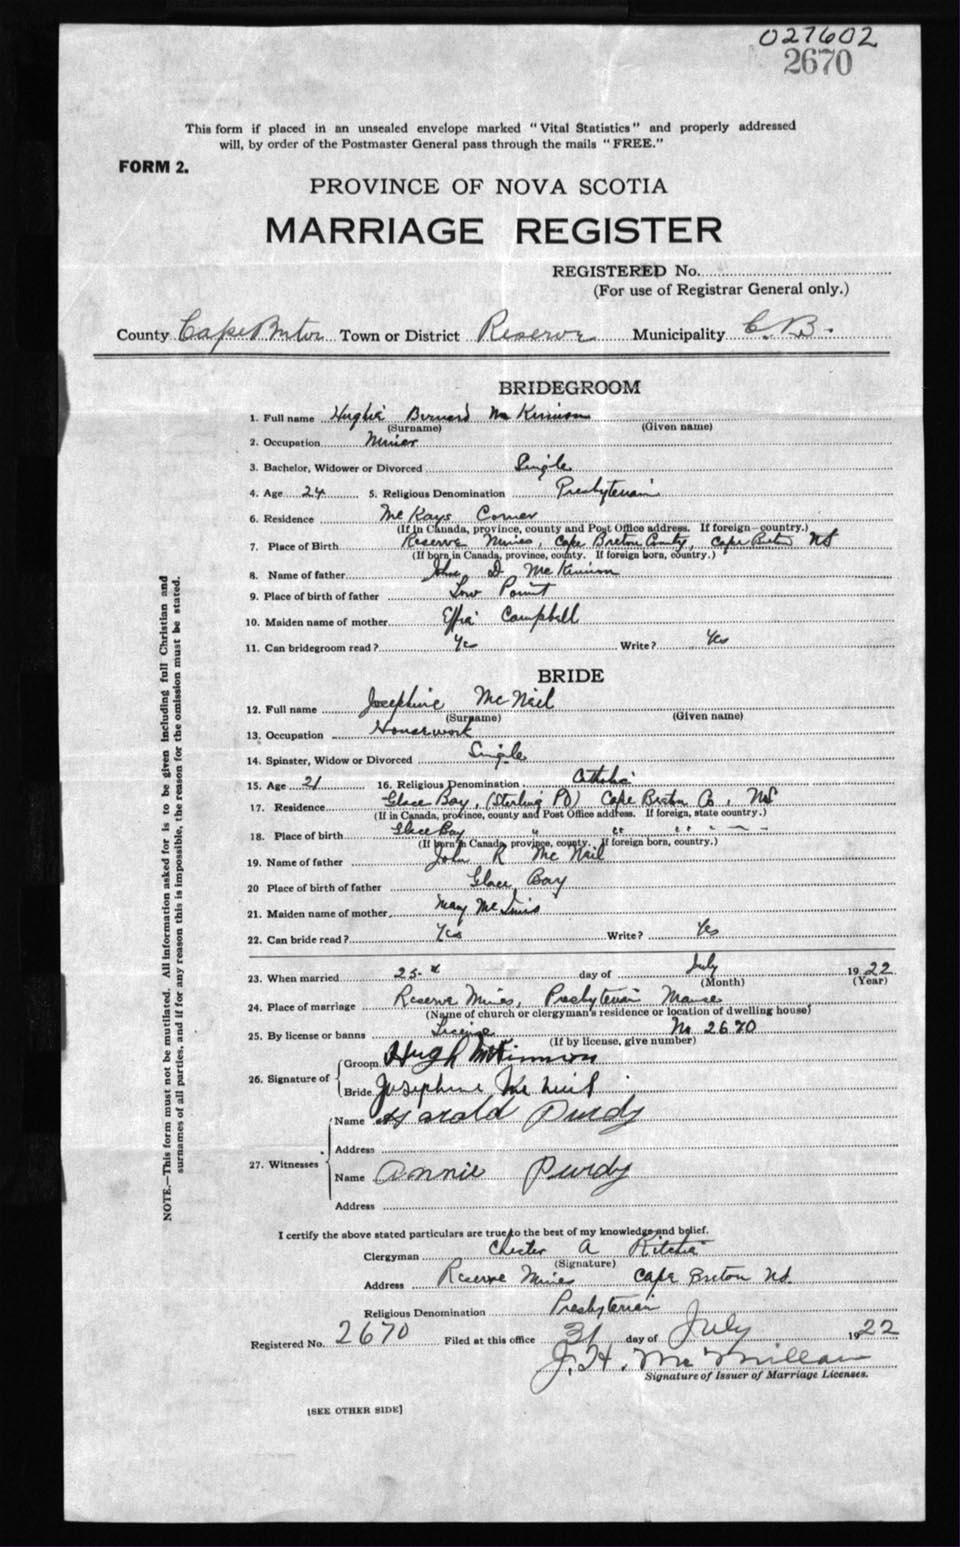 027602
2670
This form if placed in an unsealed envelope marked "Vital Statistics" and properly addressed
will, by order of the Postmaster General pass through the mails "FREE."
FORM 2.
PROVINCE OF NOVA SCOTIA
MARRIAGE REGISTER
REGISTERED No.
(For use of Registrar General only.)
County Cape Breton Town or District Reserve Municipality C. B.
BRIDEGROOM
1. Full name Hughie Bernard McKinnon
(Surname) (Given name)
2. Occupation Miner
3. Bachelor, Widower or Divorced Single
4. Age 24 5. Religious Denomination Presbyterian
6. Residence McKays Corner
(If in Canada, province, county and Post Office address. If foreign—country.)
7. Place of Birth Reserve Mines, Cape Breton County, Cape Breton NS
(If born in Canada, province, county. If foreign born, country.)
8. Name of father John D McKinnon
9. Place of birth of father Low Point
10. Maiden name of mother Effie Campbell
11. Can bridegroom read? Yes Write? Yes
BRIDE
12. Full name Josephine McNeil
(Surname) (Given name)
13. Occupation Housework
14. Spinster, Widow or Divorced Single
15. Age 21 16. Religious Denomination Catholic
17. Residence Glace Bay, (Sterling PO) Cape Breton Co, NS
(If in Canada, province, county and Post Office address. If foreign, state country.)
18. Place of birth Glace Bay " " "
(If born in Canada, province, county. If foreign born, country.)
19. Name of father John R McNeil
20 Place of birth of father Glace Bay
21. Maiden name of mother Mary
22. Can bride read? Yes Write? Yes
23. When married 25th day of July 1922
(Month) (Year)
24. Place of marriage Reserve Mines, Presbyterian Manse
(Name of church or clergyman's residence or location of dwelling house)
25. By license or banns License No 2670
(If by license, give number)
26. Signature of Groom Hugh McKinnon
Bride Josephine McNeil
27. Witnesses Name Harold Purdy
Address
Name Annie Purdy
Address
I certify the above stated particulars are true to the best of my knowledge and belief.
Clergyman Chester A Ritchie
(Signature)
Address Reserve Mines Cape Breton NS.
Religious Denomination Presbyterian
Registered No. 2670 Filed at this office 31 day of July 1922
J. H. McMillan
Signature of Issuer of Marriage Licenses.
[SEE OTHER SIDE]
NOTE.—This form must not be mutilated. All information asked for is to be given including full Christian and
surnames of all parties, and if for any reason this is impossible, the reason for the omission must be stated.